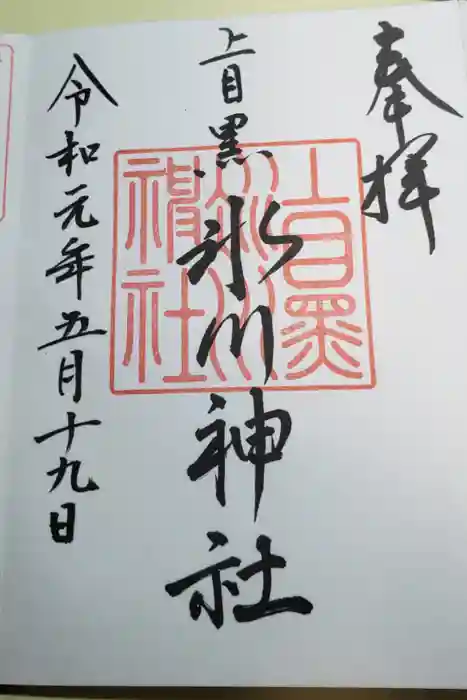 奉拝
上目黒氷川神社
令和元年五月十九日
上目黒
氷川
神社